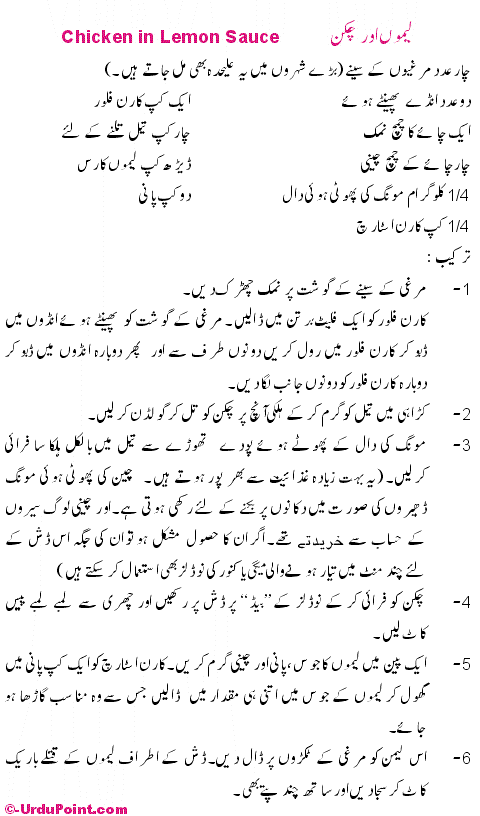 لیموں اور چکن Chicken in Lemon Sauce
چار عدد مرغیوں کے سینے (بڑے شہروں میں یہ علیحدہ بھی مل جاتے ہیں۔)
دو عدد انڈے پھینٹے ہوئے ایک کپ کارن فلور
ایک چائے کا چمچ نمک چار کپ تیل تلنے کے لئے
چار چائے کے چمچ چینی ڈیڑھ کپ لیموں کا رس
1/4 کلو گرام مونگ کی پھوٹی ہوئی دال دو کپ پانی
1/4 کپ کارن اسٹارچ
ترکیب :
1- مرغی کے سینے کے گوشت پر نمک چھڑک دیں۔
کارن فلور کو ایک فلیٹ برتن میں ڈالیں۔ مرغی کے گوشت کو پھینٹے ہوئے انڈوں میں
ڈبو کر کارن فلور میں رول کریں دونوں طرف سے اور پھر دوبارہ انڈوں میں ڈبو کر
دوبارہ کارن فلور کو دونوں جانب لگا دیں۔
2- کڑاہی میں تیل کو گرم کر کے ہلکی آنچ پر چکن کو تل کر گولڈن کر لیں۔
3- مونگ کی دال کے پھوٹے ہوئے پودے تھوڑے سے تیل میں بالکل ہلکا سا فرائی
کر لیں۔ (یہ بہت زیادہ غذائیت سے بھر پور ہوتے ہیں۔ چین کی پھوٹی ہوئی مونگ
ڈھیروں کی صورت میں دکانوں پر بکنے کے لئے رکھی ہوتی ہے۔ اور چینی لوگ سیروں
کے حساب سے خریدتے تھے۔ اگر ان کا حصول مشکل ہو تو ان کی جگہ اس ڈش کے
لئے چند منٹ میں تیار ہونے والی میگی یا کنور کی نوڈلز بھی استعمال کر سکتے ہیں)
4- چکن کو فرائی کر کے نوڈلز کے ”بیڈ“ پر ڈش پر رکھیں اور چھری سے لمبے لمبے پیس
کاٹ لیں۔
5- ایک پین میں لیموں کا جوس، پانی اور چینی گرم کریں۔ کارن اسٹارچ کو ایک کپ پانی میں
گھول کر لیموں کے جوس میں اتنی ہی مقدار میں ڈالیں جس سے وہ مناسب گاڑھا ہو
جائے۔
6- اس لیمن کو مرغی کے ٹکڑوں پر ڈال دیں۔ ڈش کے اطراف لیموں کے قتلے باریک
کاٹ کر سجا دیں اور ساتھ چند پتے بھی۔
©-UrduPoint.com